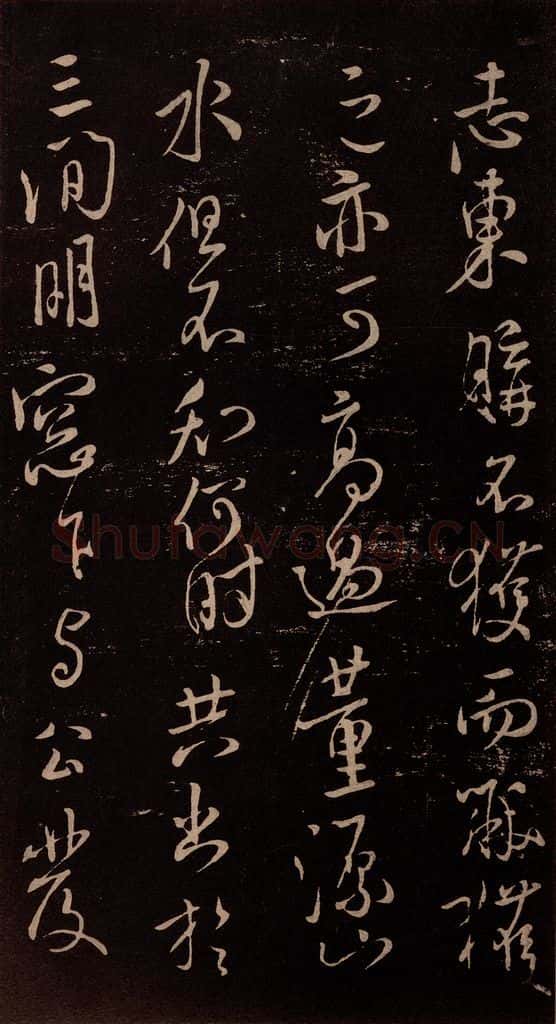 志東購不獲而
之亦可高過董源山
水但不知何時共出於
三間明窓下与公發
Shufawang.CN